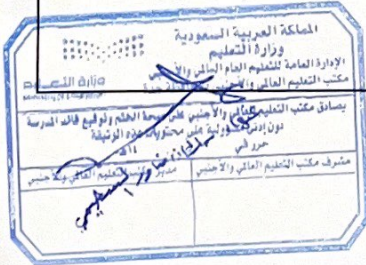 المملكة العربية السعودية
وزارة التعليم
وزارة التعليم
الإدارة العامة للتعليم العام العالمي والأجنبي
مكتب التعليم العالمي والأجنبي جدة
يصادق مكتب التعليم العالمي والأجنبي على صحة الختم وتوقيع قائد المدرسة
دون أدنى مسؤولية على محتويات هذه الوثيقة
حرر في
مشرف مكتب التعليم العالمي والأجنبي
مدير مكتب التعليم العالمي والأجنبي